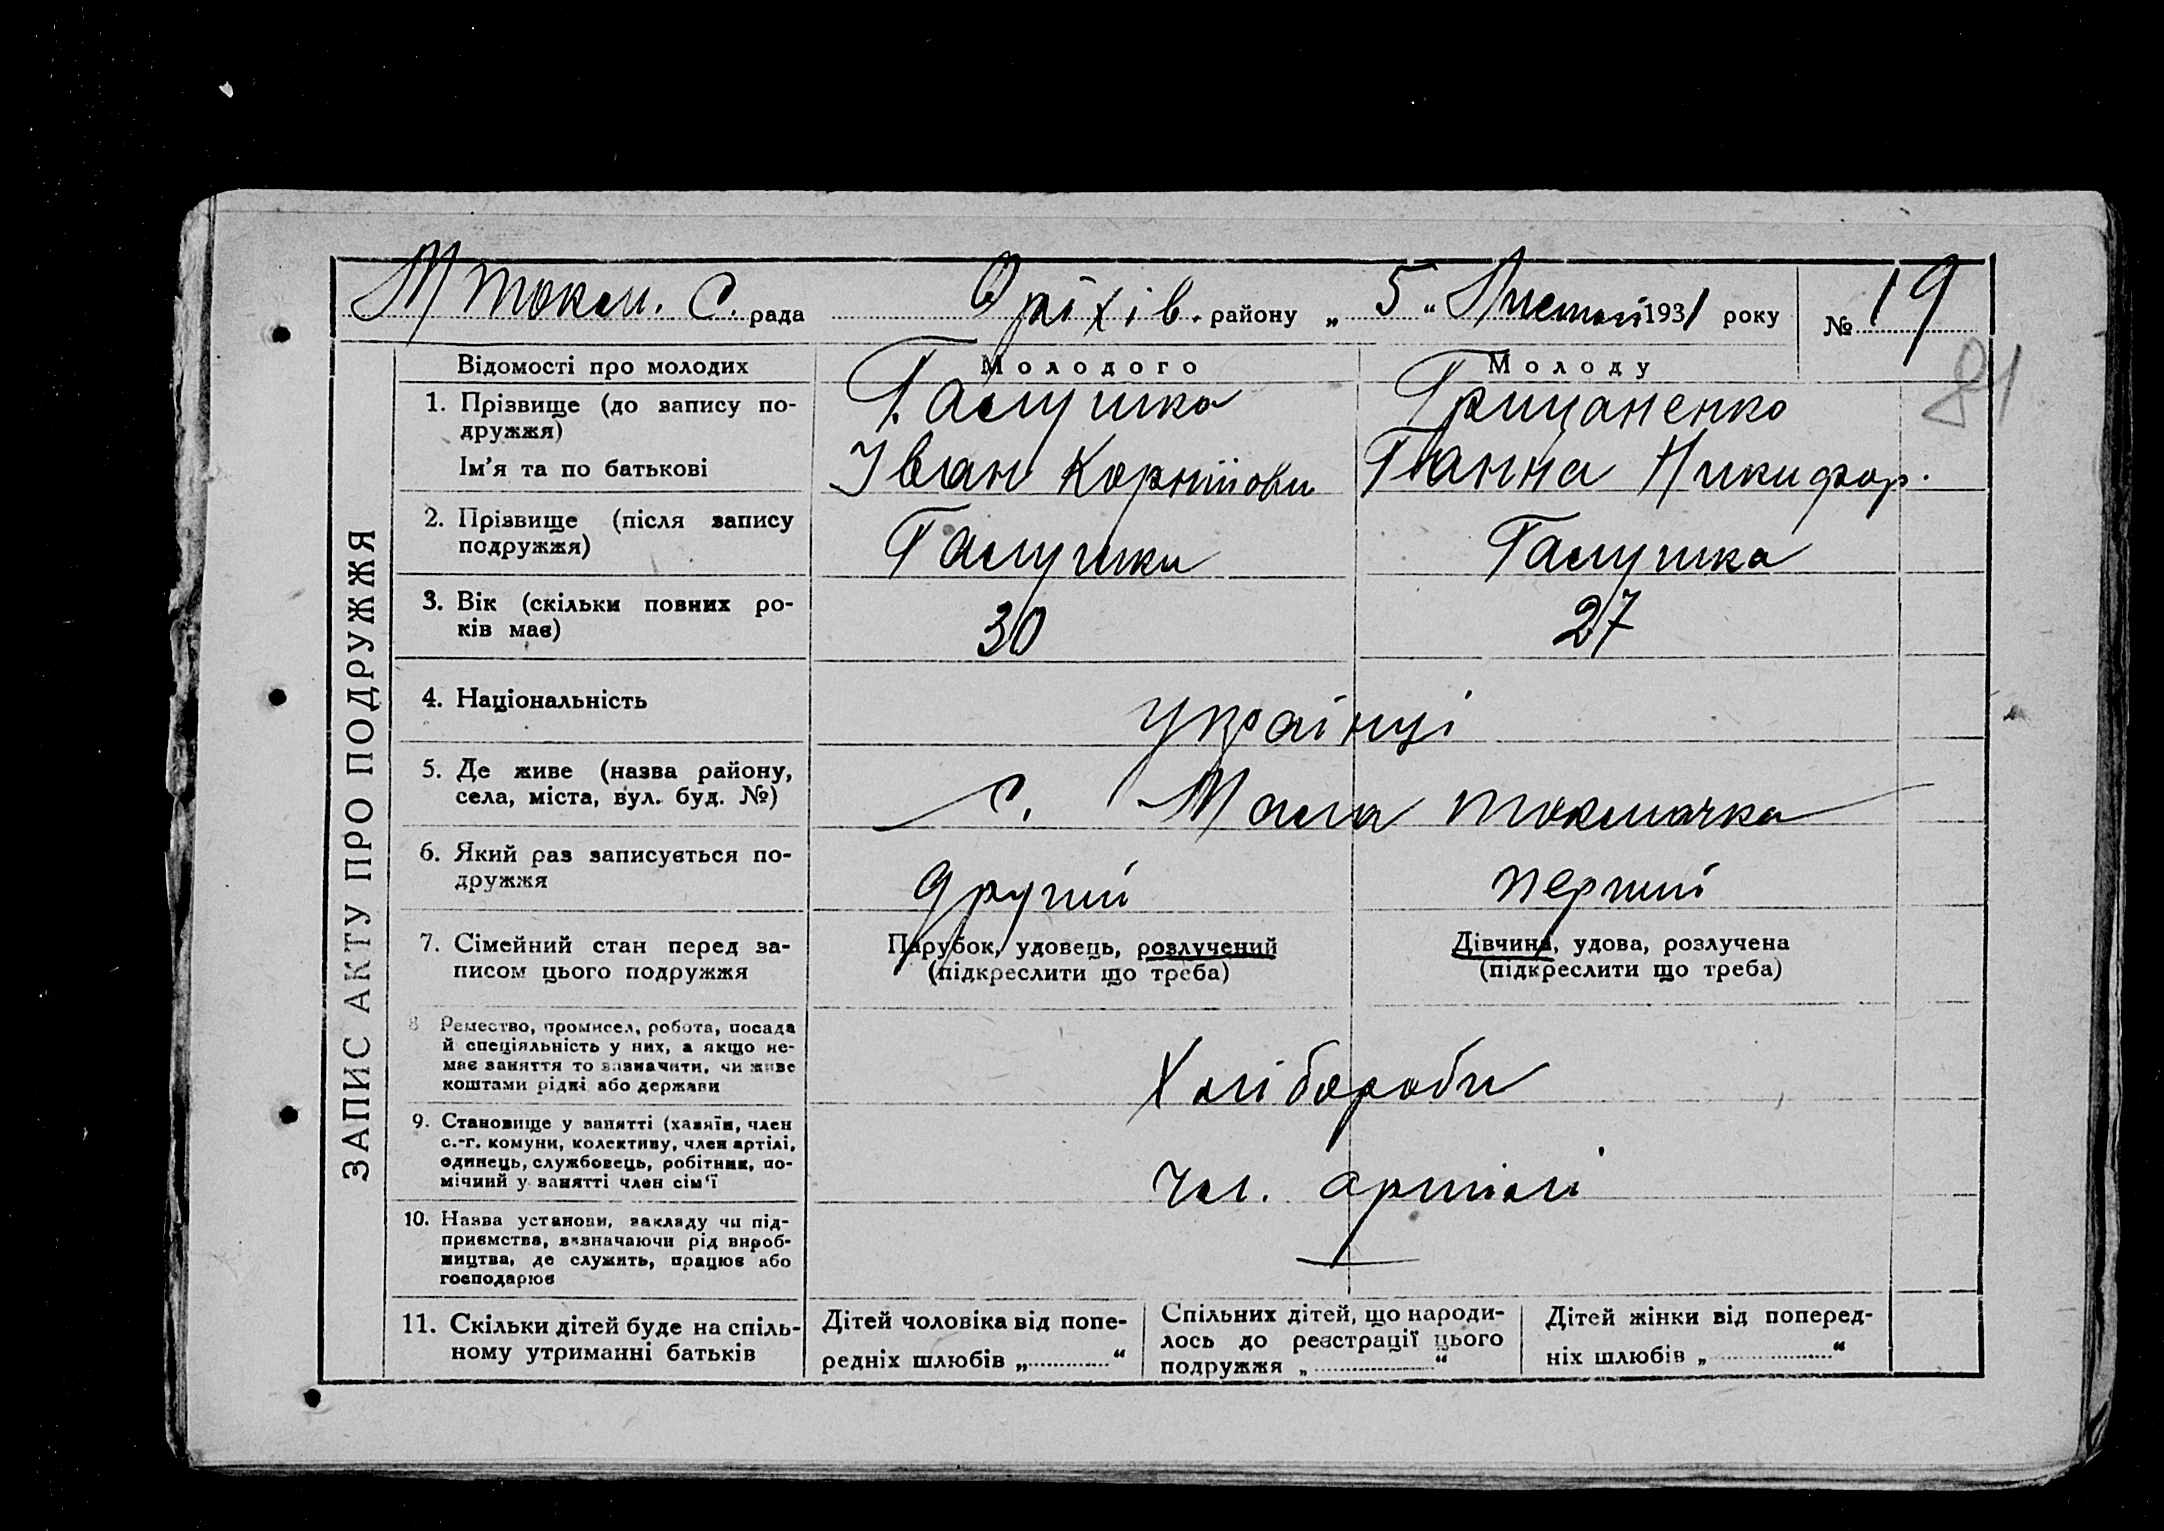 М Токм. С. рада Оріхів. району „ 5 “ Лютий 1931 року № 19
81
ЗАПИС АКТУ ПРО ПОДРУЖЖЯ
Відомості про молодих Молодого Молоду
1. Прізвище (до запису по- Галушка Грицаненко
дружжя)
Ім'я та по батькові Іван Корнійови Ганна Никифор.
2. Прізвище (після запису Галушка Галушка
подружжя)
3. Вік (скільки повних ро- 30 27
ків має)
4. Національність українці
5. Де живе (назва району, с. Мала Токмачка
села, міста, вул. буд. №)
6. Який раз записується по- другий перший
дружжя
7. Сімейний стан перед за- Парубок, удовець, розлучений Дівчина, удова, розлучена
писом цього подружжя (підкреслити що треба) (підкреслити що треба)
8 Ремество, промисел, робота, посада
й спеціяльність у них, а якщо не-
має заняття то визначити, чи живе Хлібороби
коштами рідні або держави
9. Становище у занятті (хазяїн, член
с.-г. комуни, колективу, член артілі,
одинець, службовець, робітник, по- Чл. артілі
мічний у занятті член сім'ї
10. Назва установи, закладу чи під-
приємства, визначаючи рід вироб-
ництва, де служить, працює або —
господарює
11. Скільки дітей буде на спіль- Дітей чоловіка від попе- Спільних дітей, що народи- Дітей жінки від поперед-
ному утриманні батьків редніх шлюбів „ “ лось до реєстрації цього ніх шлюбів „ “
подружжя „ “